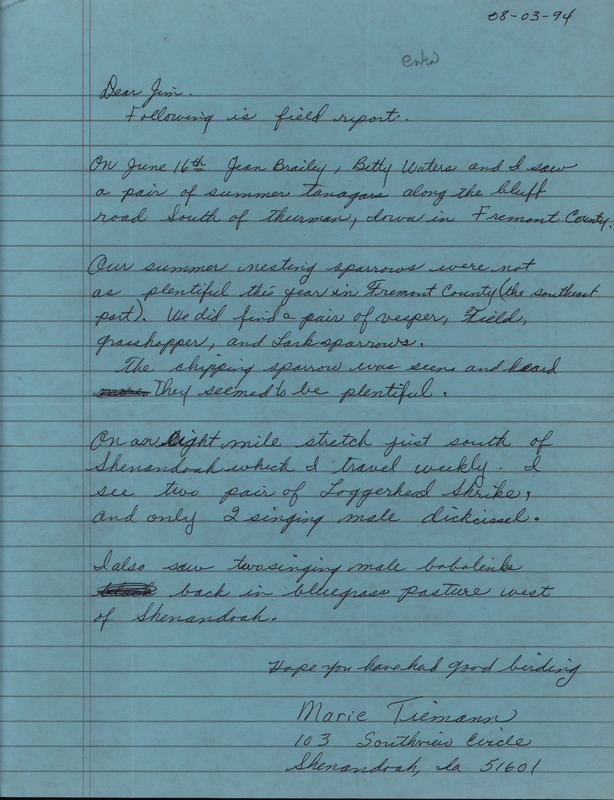 08-03-94
Dear Jim.
Following is field report.
On June 16th Jean Braily, Betty Waters and I saw
a pair of summer tanagars along the bluff
road South of Thurman, Iowa in Fremont County.
Our summer nesting sparrows were not
as plentiful this year in Fremont County (the southeast
part). We did find a pair of vesper, Field,
grasshopper, and Lark sparrows.
The chipping sparrow was seen and heard
They seemed to be plentiful.
On an eight mile stretch just south of
Shenandoah which I travel weekly. I
see two pair of Loggerhead Shrike,
and only 2 singing male dickcissel.
I also saw two singing male bobolinks
back in bluegrass pasture west
of Shenandoah.
Hope you have had good birding
Marie Tiemann
103 Southview Circle
Shenandoah, Ia 51601